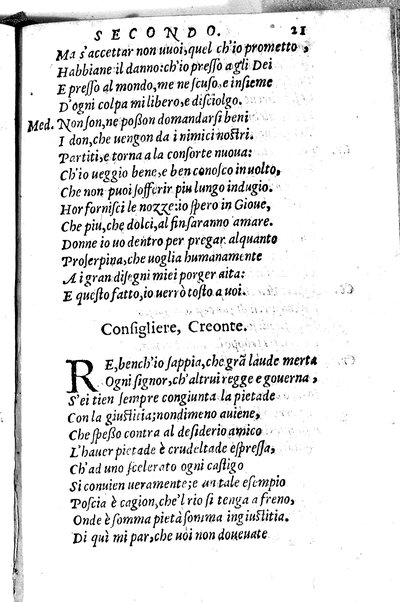 SECONDO. 21
Ma s'accettar non vuoi, quel ch'io prometto,
Habbiane il danno: ch'io presso agli Dei
E presso al mondo, me ne scuso, e insieme
D'ogni colpa mi libero, e disciolgo.
Med. Non son, ne poßon domandarsi beni
I don, che uengon da i nimici nostri.
Partiti, e torna a la consorte nuoua:
Ch'io ueggio bene, e ben conosco in uolto,
Che non puoi sofferir piu lungo indugio.
Hor fornisci le nozze: io spero in Gioue,
Che piu, che dolci, al fin saranno amare.
Donne io uo dentro per pregar alquanto
Proserpina, che uoglia humanamente
A i gran disegni miei porger aita:
E questo fatto, io uerrò tosto a uoi.
Consigliere, Creonte.
RE, bench'io sappia, che grã laude merta
Ogni signor, ch'altrui regge e gouerna,
S'ei tien sempre congiunta la pietade
Con la giustitia; nondimeno auiene,
Che speßo contra al desiderio amico
L'hauer pietade è crudeltade espressa,
Ch'ad uno scelerato ogni castigo
Si conuien ueramente; e un tale esempio
Poscia è cagion, che'l rio si tenga a freno,
Onde è somma pietà somma ingiustitia.
Di quì mi par, che uoi non doueuate